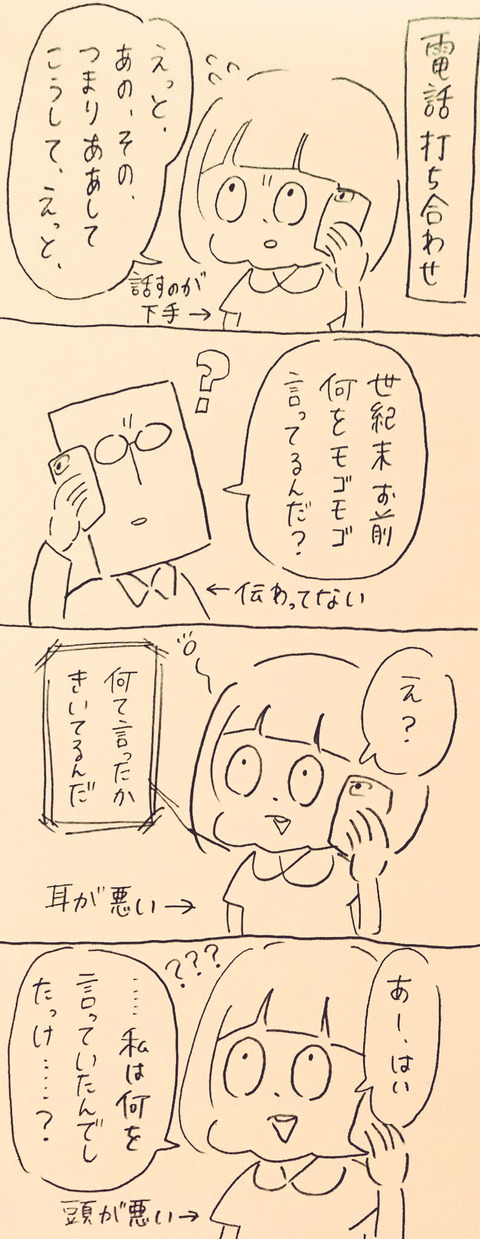 電話打ち合わせ
えっと、
あの、その、
つまりああして
こうして、えっと、
話すのが
下手→
世紀末お前
何をモゴモゴ
言ってるんだ?
?
←伝わってない
え?
何て言ったか
きいてるんだ
耳が悪い→
あー、はい
???
……私は何を
言っていたんでし
たっけ……?
頭が悪い→